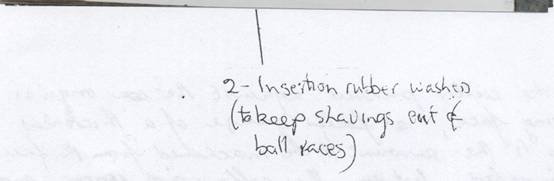 2- Insertion rubber washers
(to keep shavings out of
ball races)